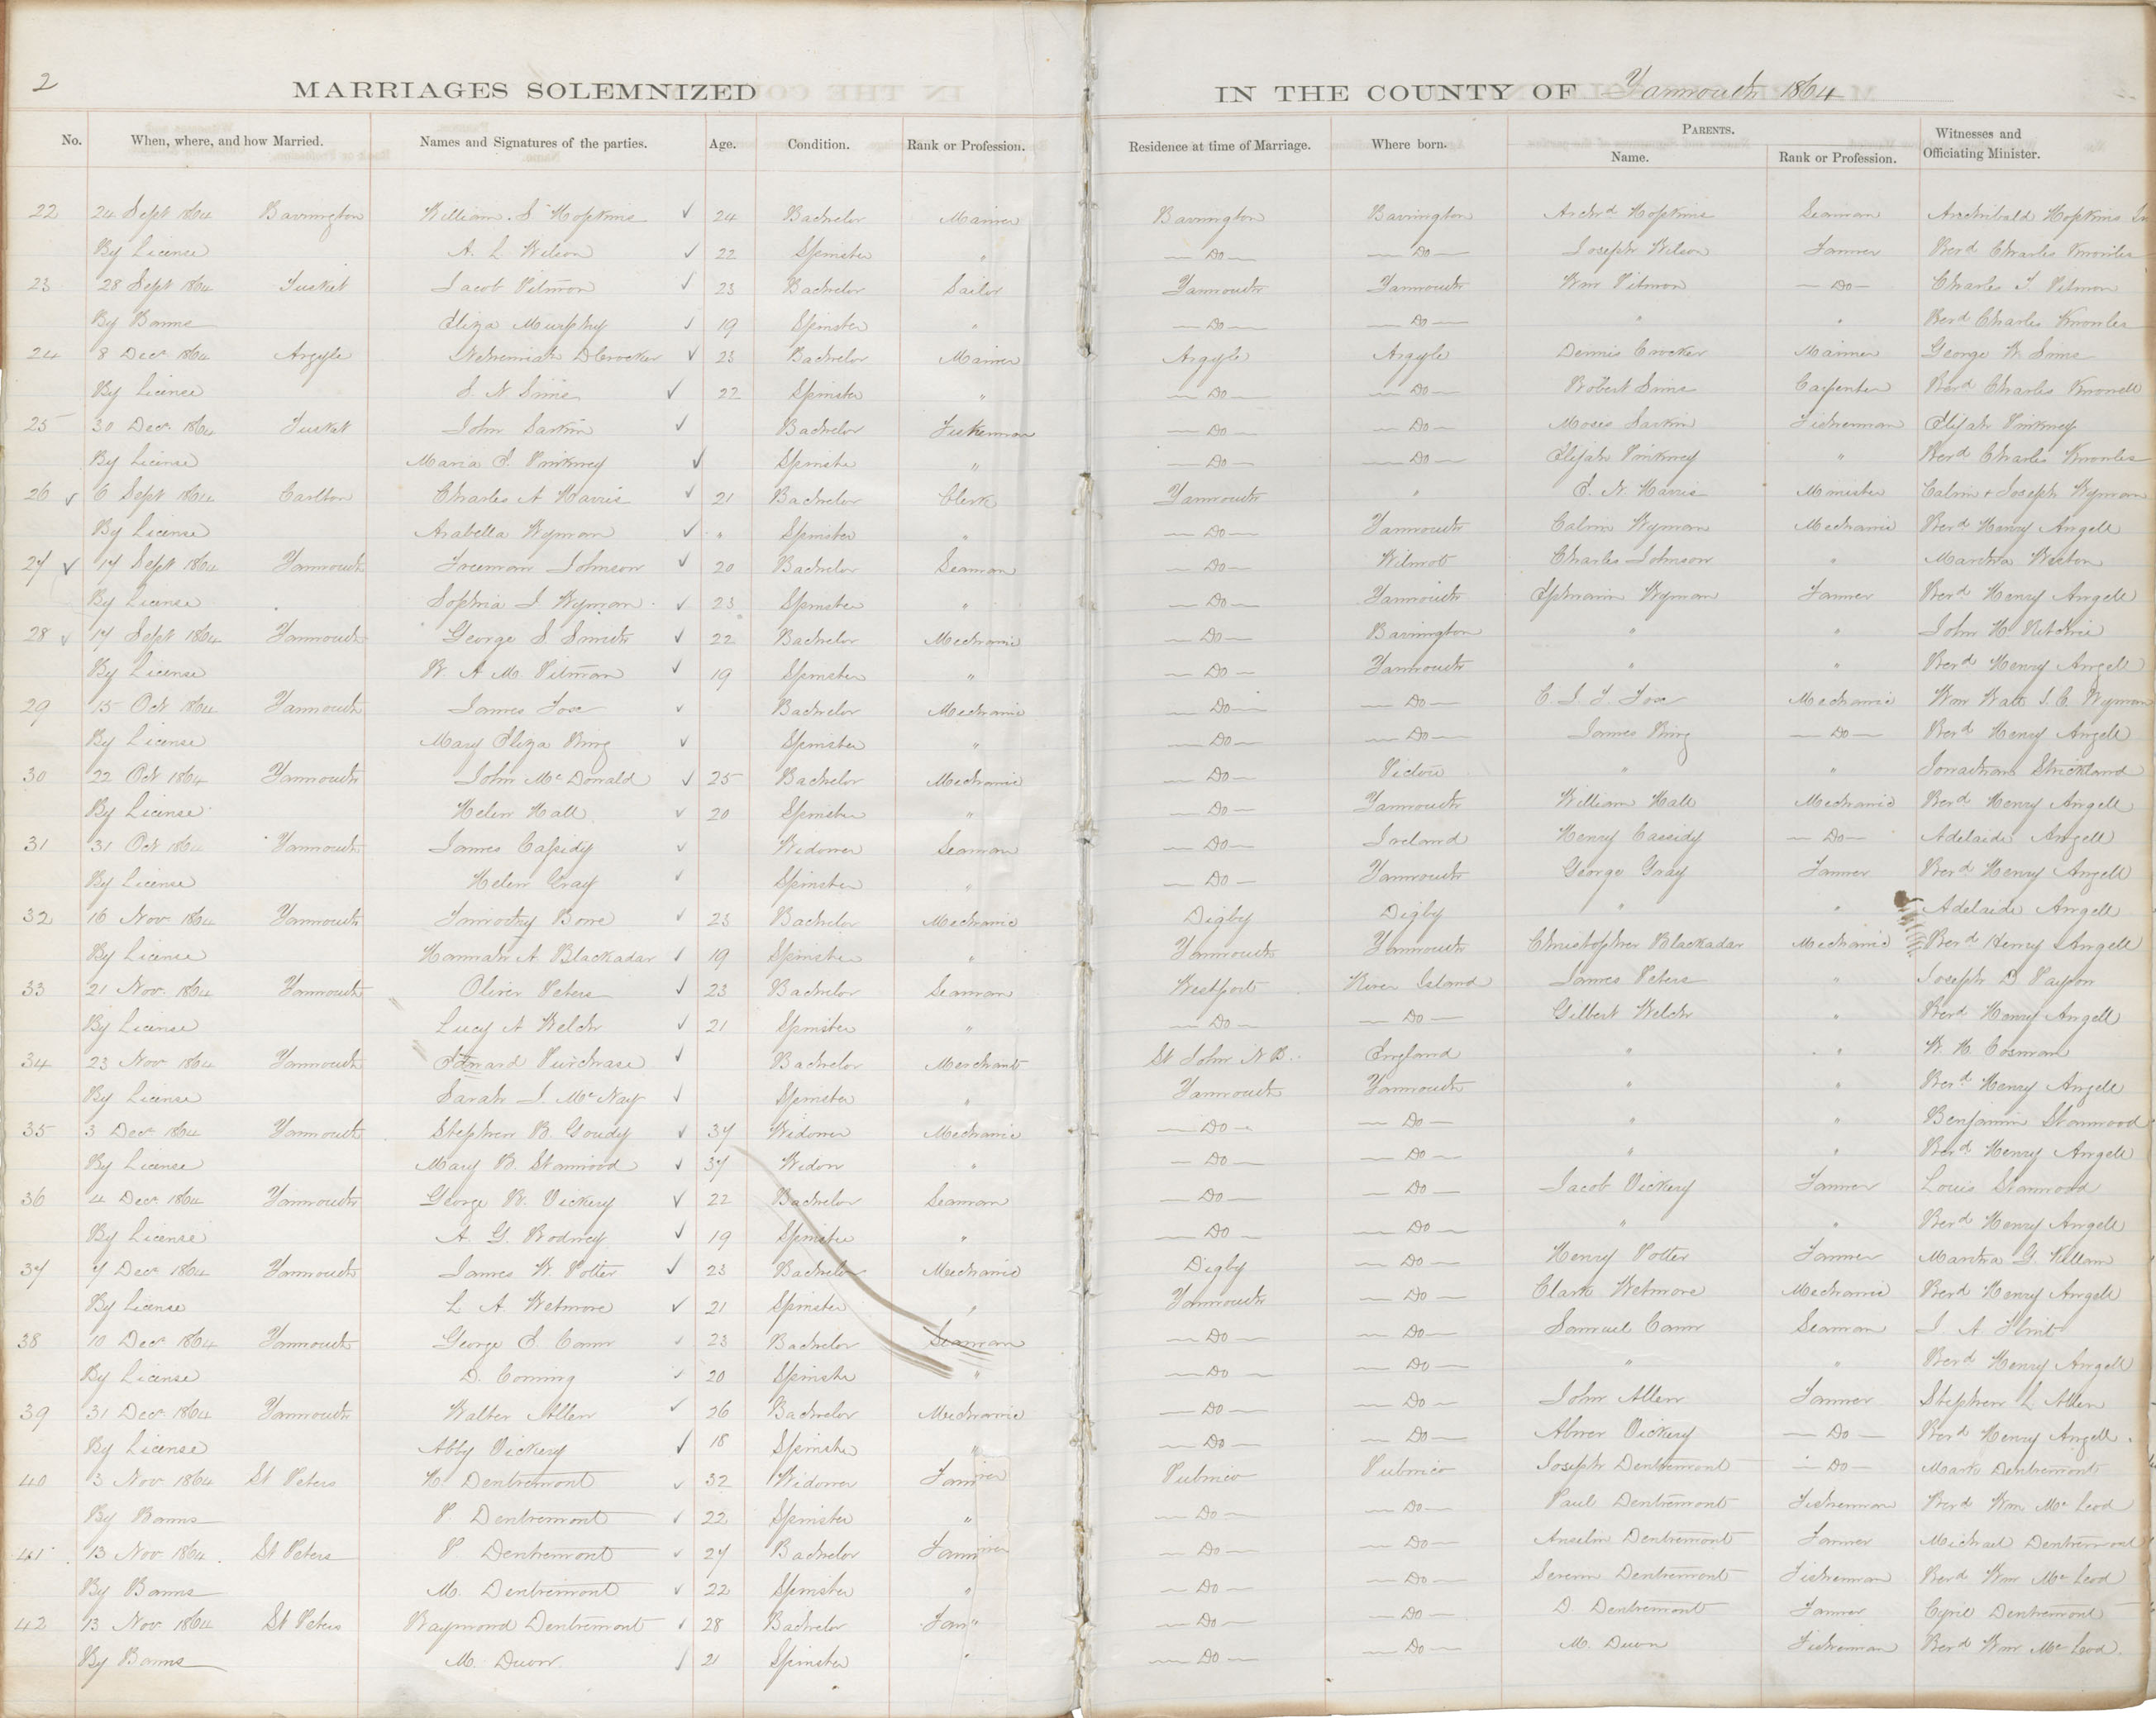 2
MARRIAGES SOLEMNIZED IN THE COUNTY OF Yarmouth 1864
No. When, where, and how Married. Names and Signatures of the parties. Age. Condition. Rank or Profession. Residence at time of Marriage. Where born. PARENTS. Name. Rank or Profession. Witnesses and Officiating Minister.
22 24 Sept 1864 Barrington William S Hopkins ✓ 24 Bachelor Mariner Barrington Barrington Archd Hopkins Seaman Archibald Hopkins
By License A. L. Wilson ✓ 22 Spinster " — Do — — Do — Joseph Wilson Farmer Revd Charles Knowles
23 28 Sept 1864 Tusket Jacob Pitman ✓ 23 Bachelor Sailor Yarmouth Yarmouth Wm Pitman — Do — Charles T. Pitman
By Banns Eliza Murphy ✓ 19 Spinster " — Do — — Do — " " Revd Charles Knowles
24 8 Decr 1864 Argyle Nehemiah D Crocker ✓ 23 Bachelor Mariner Argyle Argyle Dennis Crocker Mariner George W Sims
By License S. N. Sims ✓ 22 Spinster " — Do — — Do — Robert Sims Carpenter Revd Charles Knowell
25 30 Decr 1864 Tusket John Larkin ✓ Bachelor Fisherman — Do — — Do — Moses Larkin Fisherman Elijah Pinkney
By License Maria S. Pinkney ✓ Spinster " — Do — — Do — Elijah Pinkney " Revd Charles Knowles
26 ✓ 6 Sept 1864 Carlton Charles A Harris ✓ 21 Bachelor Clerk Yarmouth " E. N. Harris Minister Calvin & Joseph Wyman
By License Arabella Wyman ✓ " Spinster " — Do — Yarmouth Calvin Wyman Mechanic Revd Henry Angell
27 ✓ 17 Sept 1864 Yarmouth Freeman Johnson ✓ 20 Bachelor Seaman — Do — Wilmot Charles Johnson " Martha Weston
By License Sophia J Wyman ✓ 23 Spinster " — Do — Yarmouth Ephraim Wyman Farmer Revd Henry Angell
28 ✓ 17 Sept 1864 Yarmouth George S Smith ✓ 22 Bachelor Mechanic — Do — Barrington " " John H. Ritchie
By License R. A. M. Pitman ✓ 19 Spinster " — Do — Yarmouth " " Revd Henry Angell
29 15 Oct 1864 Yarmouth James Fox ✓ Bachelor Mechanic — Do — — Do — C. J. T. Fox Mechanic Wm Watt S. C. Wyman
By License Mary Eliza Ring ✓ Spinster " — Do — — Do — James Ring — Do — Revd Henry Angell
30 22 Oct 1864 Yarmouth John McDonald ✓ 25 Bachelor Mechanic — Do — Pictou " " Jonathan Strickland
By License Helen Hall ✓ 20 Spinster " — Do — Yarmouth William Hall Mechanic Revd Henry Angell
31 31 Oct 1864 Yarmouth James Cassidy ✓ Widower Seaman — Do — Ireland Henry Cassidy — Do — Adelaide Angell
By License Helen Gray ✓ Spinster " — Do — Yarmouth George Gray Farmer Revd Henry Angell
32 16 Nov 1864 Yarmouth Timothy Bone ✓ 23 Bachelor Mechanic Digby Digby " " Adelaide Angell
By License Hannah A Blackadar ✓ 19 Spinster " Yarmouth Yarmouth Christopher Blackadar Mechanic Revd Henry Angell
33 21 Nov. 1864 Yarmouth Oliver Peters ✓ 23 Bachelor Seaman Westport River Island James Peters " Joseph D Payson
By License Lucy A Welch ✓ 21 Spinster " — Do — — Do — Gilbert Welch " Revd Henry Angell
34 23 Nov 1864 Yarmouth Edward Purchase ✓ Bachelor Merchant St John N B. England " " W. H. Cosman
By License Sarah J. McNay ✓ Spinster " Yarmouth Yarmouth " " Revd Henry Angell
35 3 Decr 1864 Yarmouth Stephen B. Goudy ✓ 37 Widower Mechanic — Do — — Do — " " Benjamin Stanwood
By License Mary B. Stanwood ✓ 37 Widow " — Do — — Do — " " Revd Henry Angell
36 4 Decr 1864 Yarmouth George B. Vickery ✓ 22 Bachelor Seaman — Do — — Do — Jacob Vickery Farmer Louis Stanwood
By License A. G. Rodney ✓ 19 Spinster " — Do — — Do — " " Revd Henry Angell
37 7 Decr 1864 Yarmouth James W. Potter ✓ 23 Bachelor Mechanic Digby — Do — Henry Potter Farmer Martha G. Killam
By License L. A. Wetmore ✓ 21 Spinster " Yarmouth — Do — Clark Wetmore Mechanic Revd Henry Angell
38 10 Decr 1864 Yarmouth George E. Cann ✓ 23 Bachelor Seaman — Do — — Do — Samuel Cann Seaman J A Flint
By License D. Corning ✓ 20 Spinster " — Do — — Do — " " Revd Henry Angell
39 31 Decr 1864 Yarmouth Walter Allen ✓ 26 Bachelor Mechanic — Do — — Do — John Allen Farmer Stephen L Allen
By License Abby Vickery ✓ 18 Spinster " — Do — — Do — Abner Vickery — Do — Revd Henry Angell
40 3 Nov 1864 St Peters H. Dentremont ✓ 32 Widower Farmer Pubnico Pubnico Joseph Dentremont — Do — Mark Dentremont
By Banns P. Dentremont ✓ 22 Spinster " — Do — — Do — Paul Dentremont Fisherman Revd Wm McLeod
41 13 Nov 1864 St Peters P. Dentremont ✓ 27 Bachelor Farmer — Do — — Do — Anselm Dentremont Farmer Michael Dentremont
By Banns M. Dentremont ✓ 22 Spinster " — Do — — Do — Severin Dentremont Fisherman Revd Wm McLeod
42 13 Nov 1864 St Peters Raymond Dentremont ✓ 28 Bachelor Farm " — Do — — Do — D. Dentremont Farmer Cyril Dentremont
By Banns M. Duon ✓ 21 Spinster " — Do — — Do — M. Duon Fisherman Revd Wm McLeod